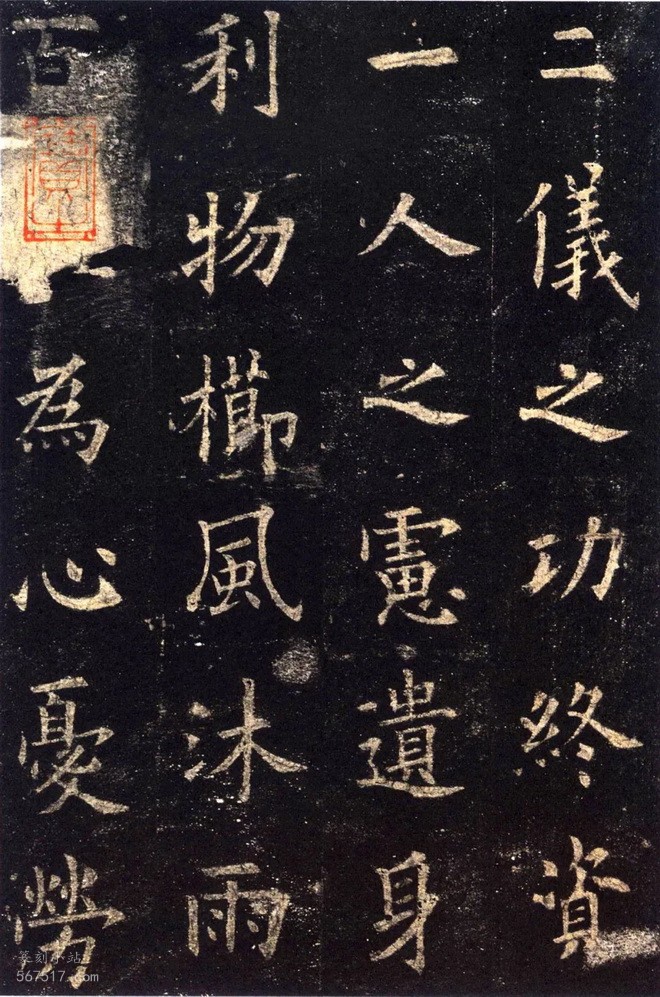 二儀之功終資
一人之慮遺身
利物櫛風沐雨
百為心憂勞
篆刻小站
567517.com